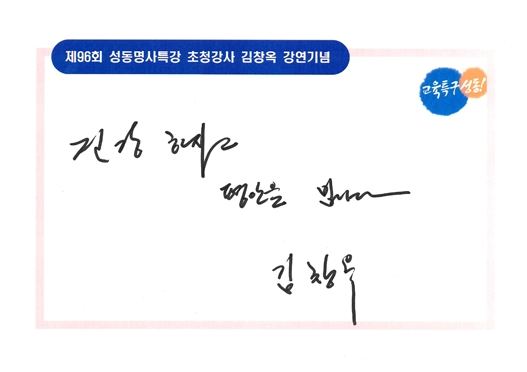 제96회 성동명사특강 초청강사 김창옥 강연기념
교육특구 성동!
건강 하시고
평안을 빕니다
김창옥